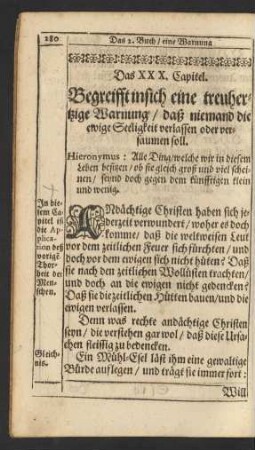 180
Das 2. Buch / eine Warnung
Das XXX. Capitel.
Begreifft in sich eine treuher-
tzige Warnung / daß niemand die
ewige Seeligkeit verlassen oder ver-
säumen soll.
Hieronymus: Alle Ding / welche wir in diesem
Leben besitzen / ob sie gleich groß und viel schei-
nen / seynd doch gegen dem künfftigen klein
und wenig.
In die-
sem Ca-
pitel ist
die Ap-
plica-
tion deß
vorigē
Thor-
heit der
Men-
schen.
ANdächtige Christen haben sich je-
derzeit verwundert / woher es doch
komme / daß die weltweisen Leut
vor dem zeitlichen Feuer sich fürchten / und
doch vor dem ewigen sich nicht hüten? Daß
sie nach den zeitlichen Wollüsten trachten /
und doch an die ewigen nicht gedencken?
Daß sie die zeitlichen Hütten bauen / und die
ewigen verlassen.
Denn was rechte andächtige Christen
seyn / die verstehen gar wol / daß diese Ursa-
chen fleissig zu bedencken.
Gleich-
nis.
Ein Mühl-Esel läst ihm eine gewaltige
Bürde auflegen / und trägt sie immer fort:
Will